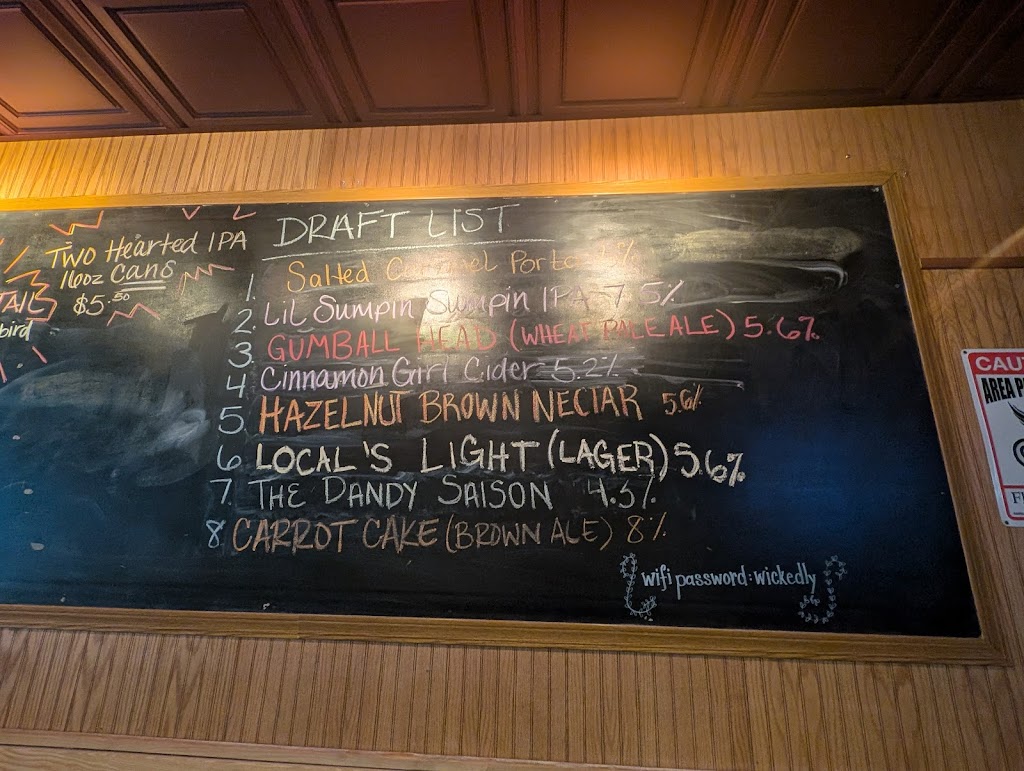 TWO Hearted IPA
16oz Cans
$5.50
TAIL
bird
DRAFT LIST
1. Salted Caramel Porter %
2. LiL Sumpin Sumpin IPA 7.5%
3. GUMBALL HEAD (WHEAT PALE ALE) 5.6%
4 Cinnamon Girl Cider 5.2%
5. HAZELNUT BROWN NECTAR 5.6%
6 LOCAL'S LIGHT (LAGER) 5.6%
7 THE DANDY SAISON 4.5%
8 CARROT CAKE (BROWN ALE) 8%
wifi password: wickedly
CAUT
AREA P